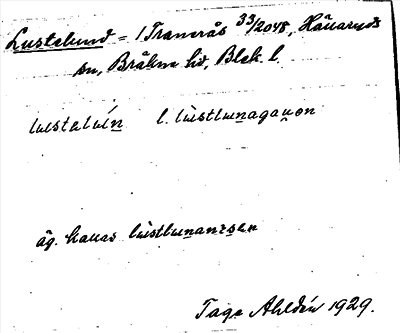 Lustelund = 1 Tranerås 33/2048, Hällaryds
sn, Bräkne hd, Blek. l.
lustelún̲ l. lùstlun̲agaụen
äg. kallas lùstlun̲an
Tage Ahldén 1929.